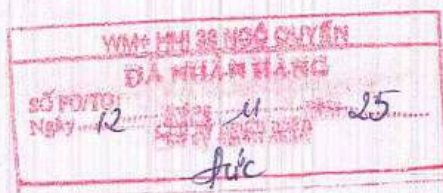 WM+ HNI 38 NGÔ QUYỀN
ĐÃ NHẬN HÀNG
SỐ PO/TO:
Ngày 12 tháng 11 năm 25
Đức